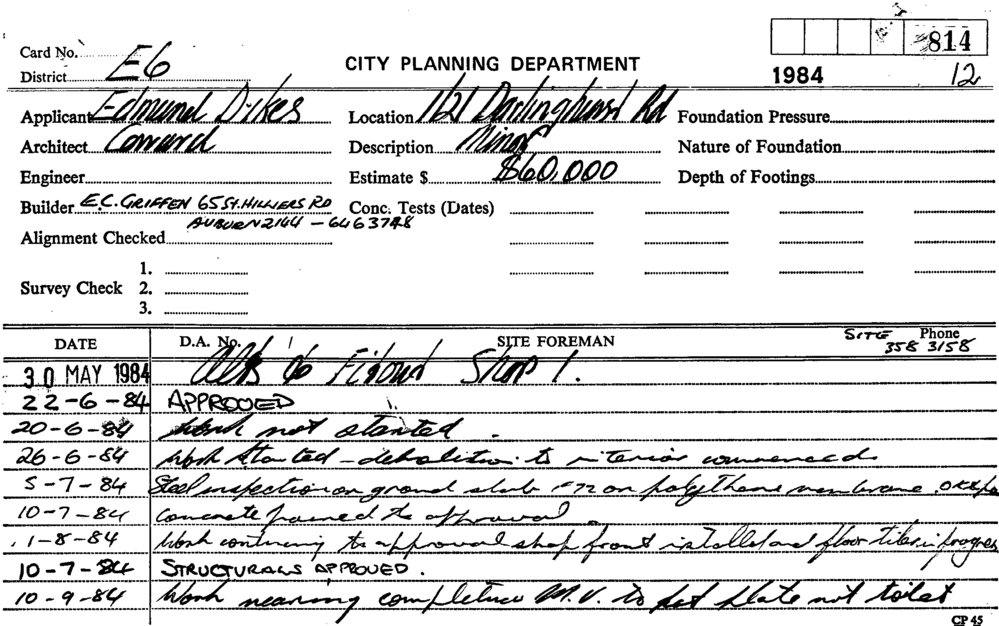 814
Card No.
District E6
CITY PLANNING DEPARTMENT
1984 12
Applicant Edmund Dikes Location 1/21 Darlinghurst Rd Foundation Pressure
Architect Conrard Description Minor Nature of Foundation
Engineer Estimate $ $60,000 Depth of Footings
Builder E.C. GRIFFEN 65 St. HILLIERS RD Conc. Tests (Dates)
AUBURN 2144 - 6463748
Alignment Checked
1.
Survey Check 2.
3.
DATE D.A. No. SITE FOREMAN SITE Phone
358 3158
30 MAY 1984 Alts to Fitout Shop 1.
22-6-84 APPROVED
20-6-84 Work not started.
26-6-84 Work Started - demolition to interior commenced
5-7-84 Steel inspection on ground slab F72 on polythene membrane. OK to
10-7-84 Concrete poured to approval.
1-8-84 Work continuing to approval shop front installed and floor tiles in progress
10-7-84 STRUCTURALS APPROVED.
10-9-84 Work nearing completion M.V. to plate not toilet
CP 45